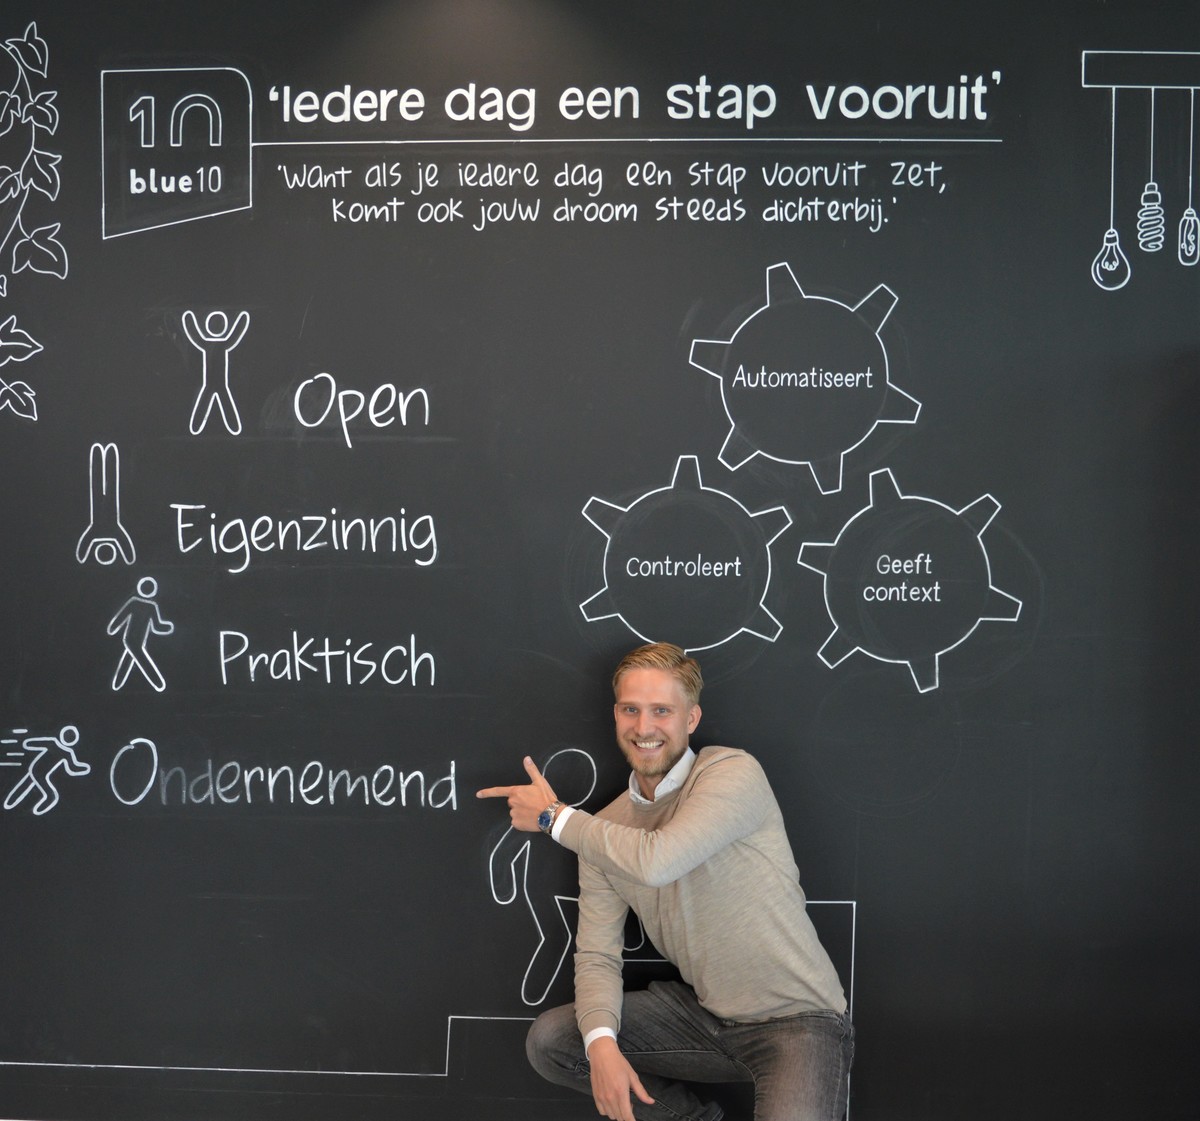 10
blue10
‘Iedere dag een stap vooruit’
'Want als je iedere dag een stap vooruit zet,
komt ook jouw droom steeds dichterbij.'
Open
Eigenzinnig
Praktisch
Ondernemend
Automatiseert
Controleert
Geeft
context